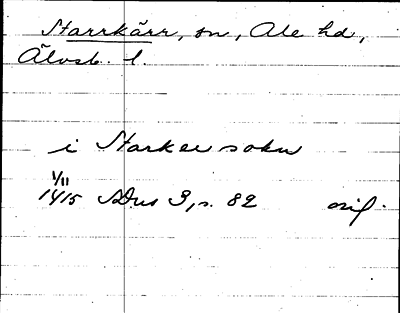 Starrkärr, sn, Ale hd,
Älvsb. l.
i Starkersokn
1/11
1415 SDns 3, s. 82 orig.